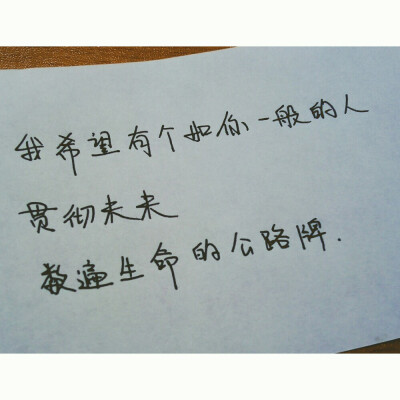 我希望有个如你一般的人
贯彻未来
数遍生命的公路牌.